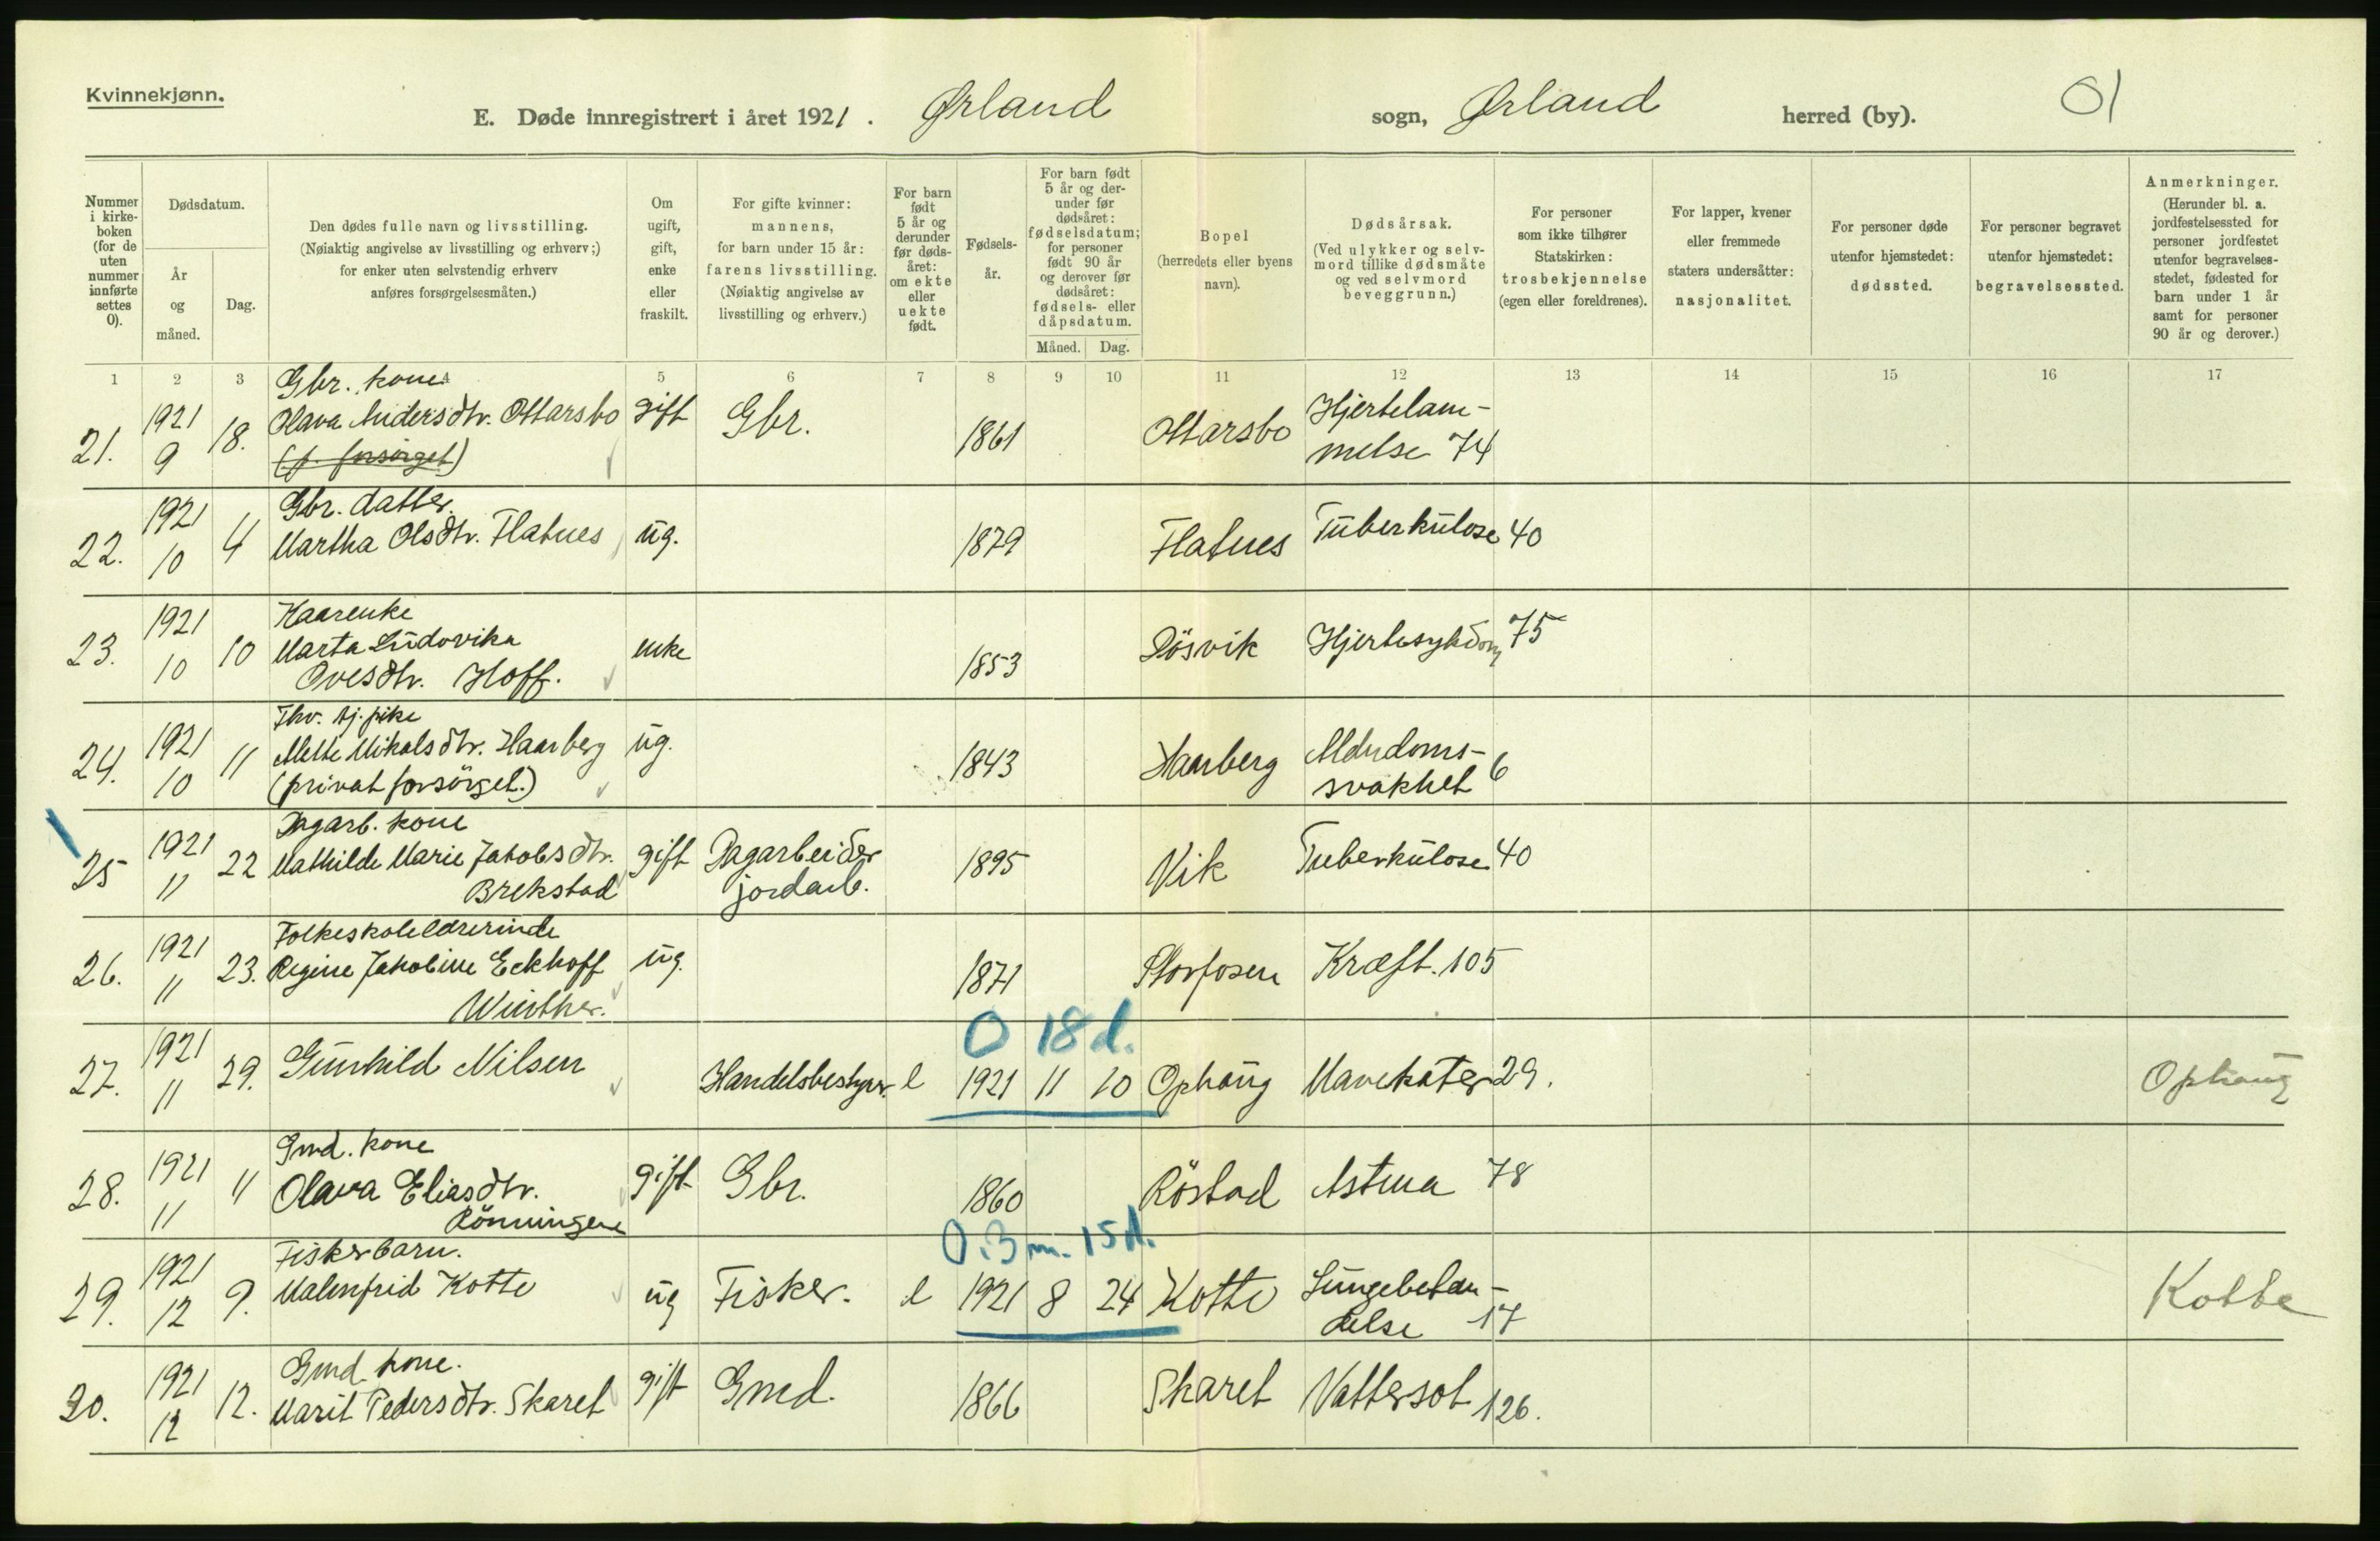 Kvinnekjønn.
E. Døde innregistrert i året 1921. Ørland sogn, Ørland herred (by). 01
Nummer i kirkeboken (for de uten nummer innførte settes 0).
Dødsdatum.
År og måned.
Dag.
Den dødes fulle navn og livsstilling.
(Nøiaktig angivelse av livsstilling og erhverv;)
for enker uten selvstendig erhverv
anføres forsørgelsesmåten.)
Om ugift, gift, enke eller fraskilt.
For gifte kvinner: mannens, for barn under 15 år: farens livsstilling. (Nøiaktig angivelse av livsstilling og erhverv.)
For barn født 5 år og derunder før dødsåret: om ekte eller uekte født.
Fødselsår.
For barn født 5 år og derunder før dødsåret: fødselsdatum; for personer født 90 år og derover før dødsåret: fødsels- eller dåpsdatum.
Måned. Dag.
Bopel (herredets eller byens navn).
Dødsårsak. (Ved ulykker og selvmord tillike dødsmåte og ved selvmord beveggrunn.)
For personer som ikke tilhører Statskirken: trosbekjennelse (egen eller foreldrenes).
For lapper, kvener eller fremmede staters undersåtter: nasjonalitet.
For personer døde utenfor hjemstedet: dødssted.
For personer begravet utenfor hjemstedet: begravelsessted.
Anmerkninger. (Herunder bl. a. jordfestelsessted for personer jordfestet utenfor begravelsesstedet, fødested for barn under 1 år samt for personer 90 år og derover.)
1 2 3 4 5 6 7 8 9 10 11 12 13 14 15 16 17
Gbr. kone
21. 1921 9 18. Olava Andersdtr. Ottarsbo gift Gbr. 1861 Ottarsbo Hjertelam-
(p. forsörget) melse 74
Gbr. datter
22. 1921 10 4 Martha Olsdtr. Flatnes ug. 1879 Flatnes Tuberkulose 40
Kaarenke
23. 1921 10 10 Marta Ludovika enke 1853 Hjertesygdom 75
Ovesdtr. Hoff.
Fhv. tj. pike
24. 1921 10 11 Mette Mikalsdtr. Haarberg ug. 1843 Haarberg Alderdoms-
(privat forsörget.) svakhet 6
Dagarb. kone
25 1921 11 22 Mathilde Marie Jakobsdtr. gift Dagarbeider 1895 Vik Tuberkulose 40
Brekstad jordarb.
Folkeskolelærerinde
26. 1921 11 23. Regine Jakobine Eckhoff ug. 1871 Storfosen Kræft. 105
Winther.
0 18 d.
27. 1921 11 29. Gunhild Nilsen Handelsbestyrer. e 1921 11 10 Ophaug Mavekatar 29. Ophaug
Gmd. kone
28. 1921 11 11 Olava Eliasdtr. gift Gbr. 1860 Röstad Astma 78
Rönningen
0. 3 m. 15 d.
Fiskerbarn.
29. 1921 12 9. Malmfrid Kotte ug Fisker. e 1921 8 24 Kotte Lungebetæn- Kotte
delse 17
Gmd. kone.
30. 1921 12 12. Marit Pedersdtr. Skaret gift Gmd. 1866 Skaret Vattersot 126.